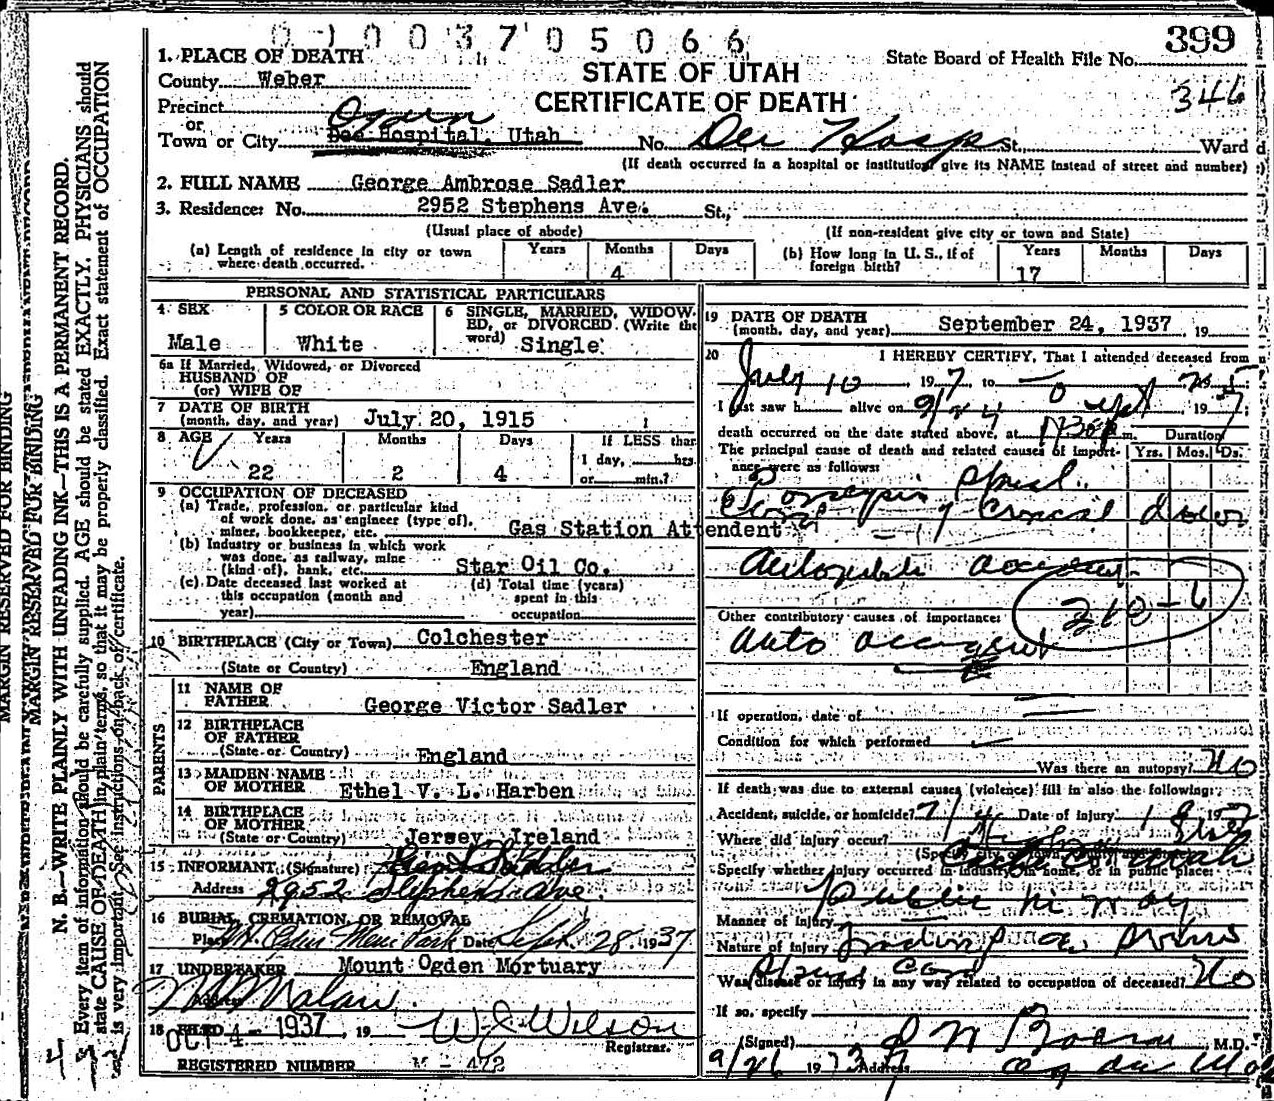 010037 05066
399
State Board of Health File No.
346
STATE OF UTAH
CERTIFICATE OF DEATH
1. PLACE OF DEATH
County Weber
Precinct
or
Town or City Ogden
Dee Hospital, Utah No. Dee Hosp St., Ward
(If death occurred in a hospital or institution, give its NAME instead of street and number)
2. FULL NAME George Ambrose Sadler
3. Residence: No. 2952 Stephens Ave. St.,
(Usual place of abode) (If non-resident give city or town and State)
(a) Length of residence in city or town where death occurred. Years Months 4 Days
(b) How long in U. S., if of foreign birth? Years 17 Months Days
PERSONAL AND STATISTICAL PARTICULARS
4 SEX Male
5 COLOR OR RACE White
6 SINGLE, MARRIED, WIDOWED, or DIVORCED (Write the word) Single
6a If Married, Widowed, or Divorced
HUSBAND OF
(or) WIFE OF
7 DATE OF BIRTH
(month, day, and year) July 20, 1915
8 AGE Years 22 Months 2 Days 4 If LESS than 1 day, hrs. or min.?
9 OCCUPATION OF DECEASED
(a) Trade, profession, or particular kind
of work done, as engineer (type of),
miner, bookkeeper, etc. Gas Station Attendent
(b) Industry or business in which work
was done, as railway, mine
(kind of), bank, etc. Star Oil Co.
(c) Date deceased last worked at
this occupation (month and
year)
(d) Total time (years)
spent in this
occupation
10 BIRTHPLACE (City or Town) Colchester
(State or Country) England
PARENTS
11 NAME OF
FATHER George Victor Sadler
12 BIRTHPLACE
OF FATHER
(State or Country) England
13 MAIDEN NAME
OF MOTHER Ethel V. L. Harben
14 BIRTHPLACE
OF MOTHER
(State or Country) Jersey, Ireland
15 INFORMANT (Signature)
Address 2952 Stephens Ave.
16 BURIAL, CREMATION, OR REMOVAL
Place Mt. Ogden Mem Park Date Sept. 28 1937
17 UNDERTAKER Mount Ogden Mortuary
Address Malan
18 FILED OCT 4 - 1937, 19 W J Wilson
Registrar.
REGISTERED NUMBER M - 472
19 DATE OF DEATH
(month, day, and year) September 24, 1937, 19
20 I HEREBY CERTIFY, That I attended deceased from
July 10, 1937, to
I last saw h alive on 9/24 1937;
death occurred on the date stated above, at m. Duration
The principal cause of death and related causes of importance were as follows: Yrs. Mos. Ds.
Automobile accident
210-6
Other contributory causes of importance:
Auto accident
If operation, date of
Condition for which performed
Was there an autopsy? No
If death was due to external causes (violence) fill in also the following:
Accident, suicide, or homicide? Date of Injury 19
Where did injury occur? Utah
(Specify city or town, county and State)
Specify whether injury occurred in industry, in home, or in public place:
Public hi way
Manner of Injury
Nature of Injury
Was disease or injury in any way related to occupation of deceased? No
If so, specify
(Signed) M.D.
9/26 1937 Address Ogden
MARGIN RESERVED FOR BINDING
MARGIN RESERVED FOR BINDING
N. B.—WRITE PLAINLY WITH UNFADING INK—THIS IS A PERMANENT RECORD.
Every item of information should be carefully supplied. AGE should be stated EXACTLY. PHYSICIANS should
state CAUSE OF DEATH in plain terms, so that it may be properly classified. Exact statement of OCCUPATION
is very important. See instructions on back of certificate.